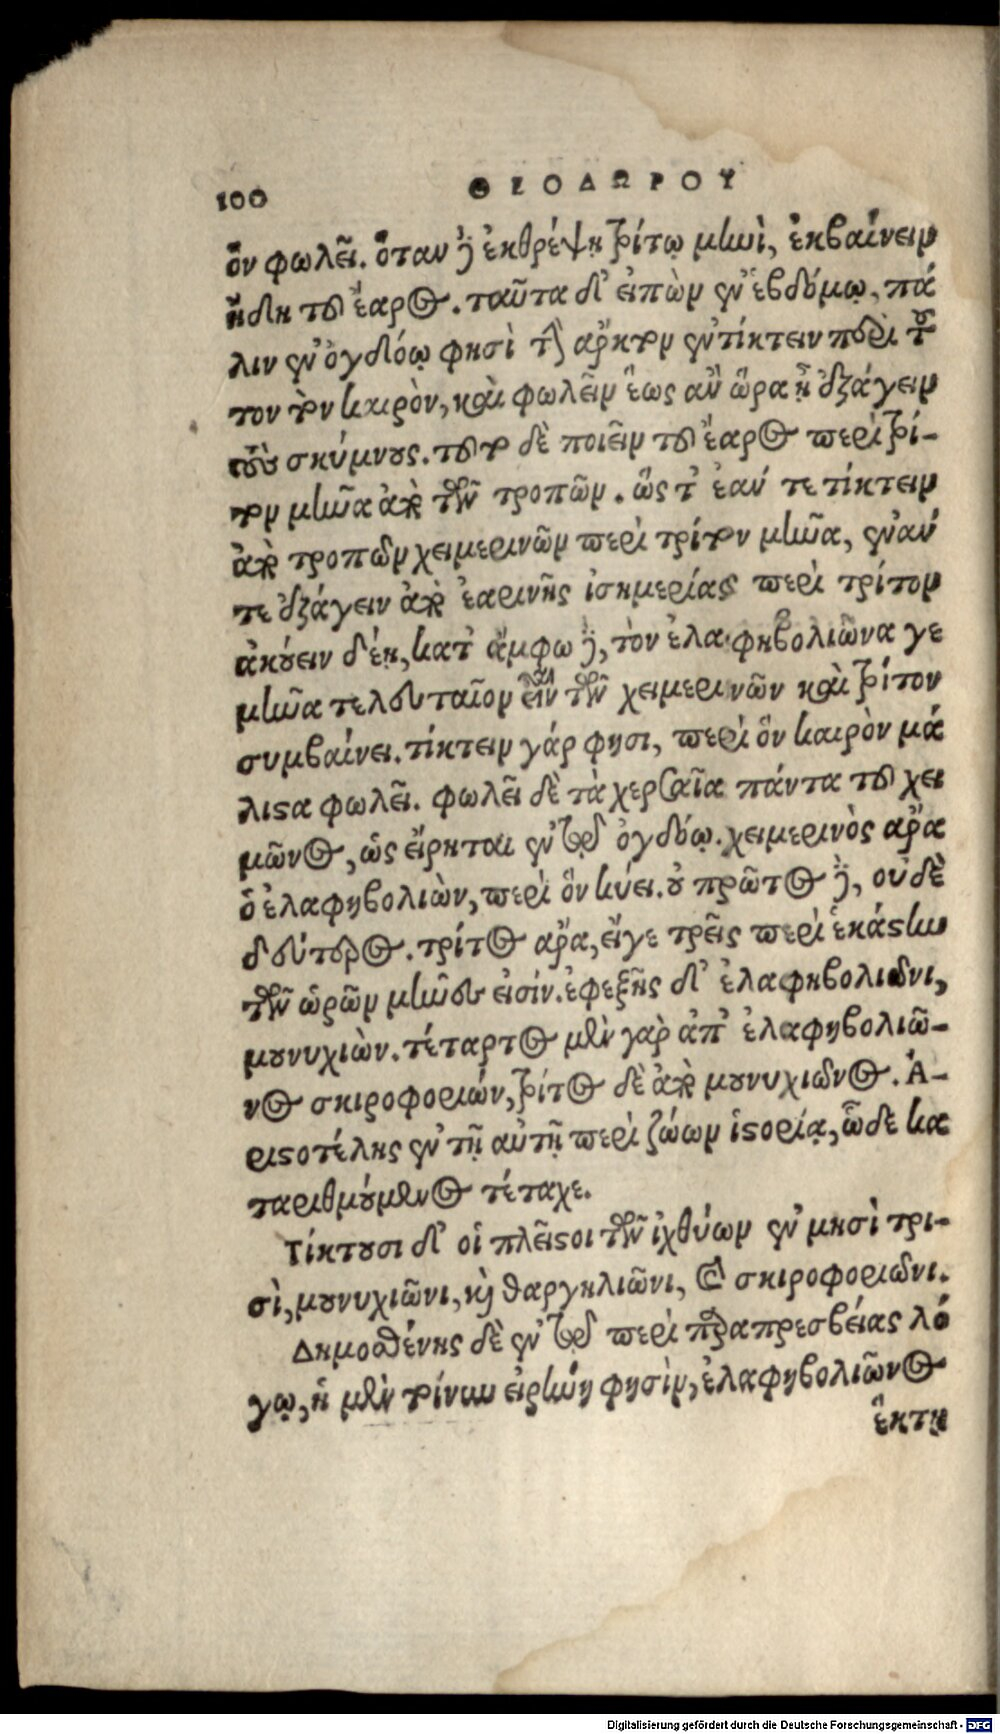 100 ΘΕΟΔΩΡΟΥ
ὃν φωλεῖ. ὅταν δὲ ἐκθρέψῃ τρίτῳ μηνὶ, ἐκβαίνειν
ἤδη τοῦ ἔαρος. ταῦτα δ’ εἰπὼν ἐν ἑβδόμῳ, πά
λιν ἐν ὀγδόῳ φησὶ τὴν ἄρκτον ἐντίκτειν περὶ τοῦ
τον τὸν καιρὸν, καὶ φωλεῖν ἕως ἂν ὥρα ᾖ ἐξάγειν
τοὺς σκύμνους. τοῦτο δὲ ποιεῖν τοῦ ἔαρος περὶ τρί-
τον μῆνα ἀπὸ τῶν τροπῶν. ὥς τ’ ἐάν τε τίκτειν
ἀπὸ τροπῶν χειμερινῶν περὶ τρίτον μῆνα, ἐν ἄν
τε ἐξάγειν ἀπὸ ἐαρινῆς ἰσημερίας περὶ τρίτον
ἀκούειν δέῃ, κατ’ ἄμφω δὲ, τὸν ἐλαφηβολιῶνα γε
μῆνα τελευταῖον εἶναι τῶν χειμερινῶν καὶ τρίτον
συμβαίνει. τίκτειν γάρ φησι, περὶ ὃν καιρὸν μά
λιστα φωλεῖ. φωλεῖ δὲ τὰ χερσαῖα πάντα τοῦ χει
μῶνος, ὡς εἴρηται ἐν τῷ ὀγδόῳ. χειμερινὸς ἄρα
ὁ ἐλαφηβολιὼν, περὶ ὃν κύει. οὐ πρῶτος δὲ, οὐδὲ
δεύτερος. τρίτος ἄρα, εἴγε τρεῖς περὶ ἑκάστην
τῶν ὡρῶν μῆνες εἰσίν. ἐφεξῆς δ’ ἐλαφηβολιῶνι,
μουνυχιὼν. τέταρτος μὲν γὰρ ἀπ’ ἐλαφηβολιῶ-
νος σκιροφοριών, τρίτος δὲ ἀπὸ μουνυχιῶνος. Ἀ-
ριστοτέλης ἐν τῇ αὐτῇ περὶ ζώων ἱστορίᾳ, ὧδε κα
ταριθμούμενος τέταχε.
Τίκτουσι δ’ οἱ πλεῖστοι τῶν ἰχθύων ἐν μησὶ τρι-
σὶ, μουνυχιῶνι, καὶ θαργηλιῶνι, καὶ σκιροφοριῶνι.
Δημοσθένης δὲ ἐν τῷ περὶ παραπρεσβείας λό
γῳ, ἡ μὲν τοίνυν εἰρήνη φησὶν, ἐλαφηβολιῶνος
ἕκτῃ
Digitalisierung gefördert durch die Deutsche Forschungsgemeinschaft - DFG